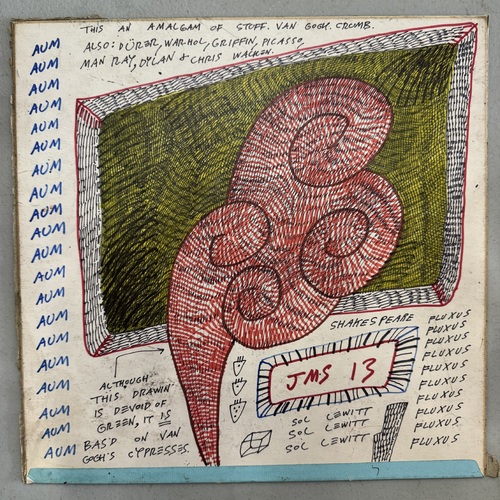 THIS AN AMALGAM OF STUFF. VAN GOGH. CRUMB.
ALSO: DÜRER, WARHOL, GRIFFIN, PICASSO,
MAN RAY, DYLAN & CHRIS WALKEN.
AUM
AUM
AUM
AUM
AUM
AUM
AUM
AUM
AUM
AUM
AUM
AUM
AUM
AUM
AUM
AUM
AUM
AUM
AUM
AUM
ALTHOUGH
THIS DRAWIN'
IS DEVOID OF
GREEN, IT IS
BAS'D ON VAN
GOGH'S CYPRESSES.
SHAKESPEARE
JMS 13
SOL LEWITT
SOL LEWITT
SOL LEWITT
FLUXUS
FLUXUS
FLUXUS
FLUXUS
FLUXUS
FLUXUS
FLUXUS
FLUXUS
FLUXUS